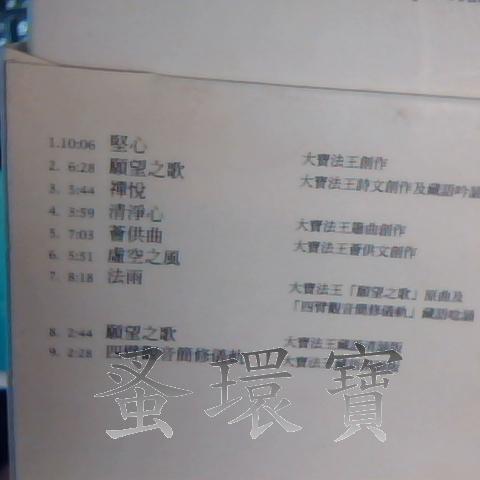 1.10:06 堅心 大寶法王創作
2. 6:28 願望之歌 大寶法王詩文創作及藏語吟誦
3. 5:44 禪悅
4. 3:59 清淨心 大寶法王
5. 7:03 薈供曲 大寶法王薈供文創作
6. 5:51 虛空之風
7. 8:18 法雨 大寶法王「願望之歌」原曲及
「四臂觀音簡修儀軌」藏語唸誦
8. 2:44 願望之歌 大寶法王藏語清唱版
9. 2:28 四臂觀音簡修儀軌 大寶法王
蚤環寶